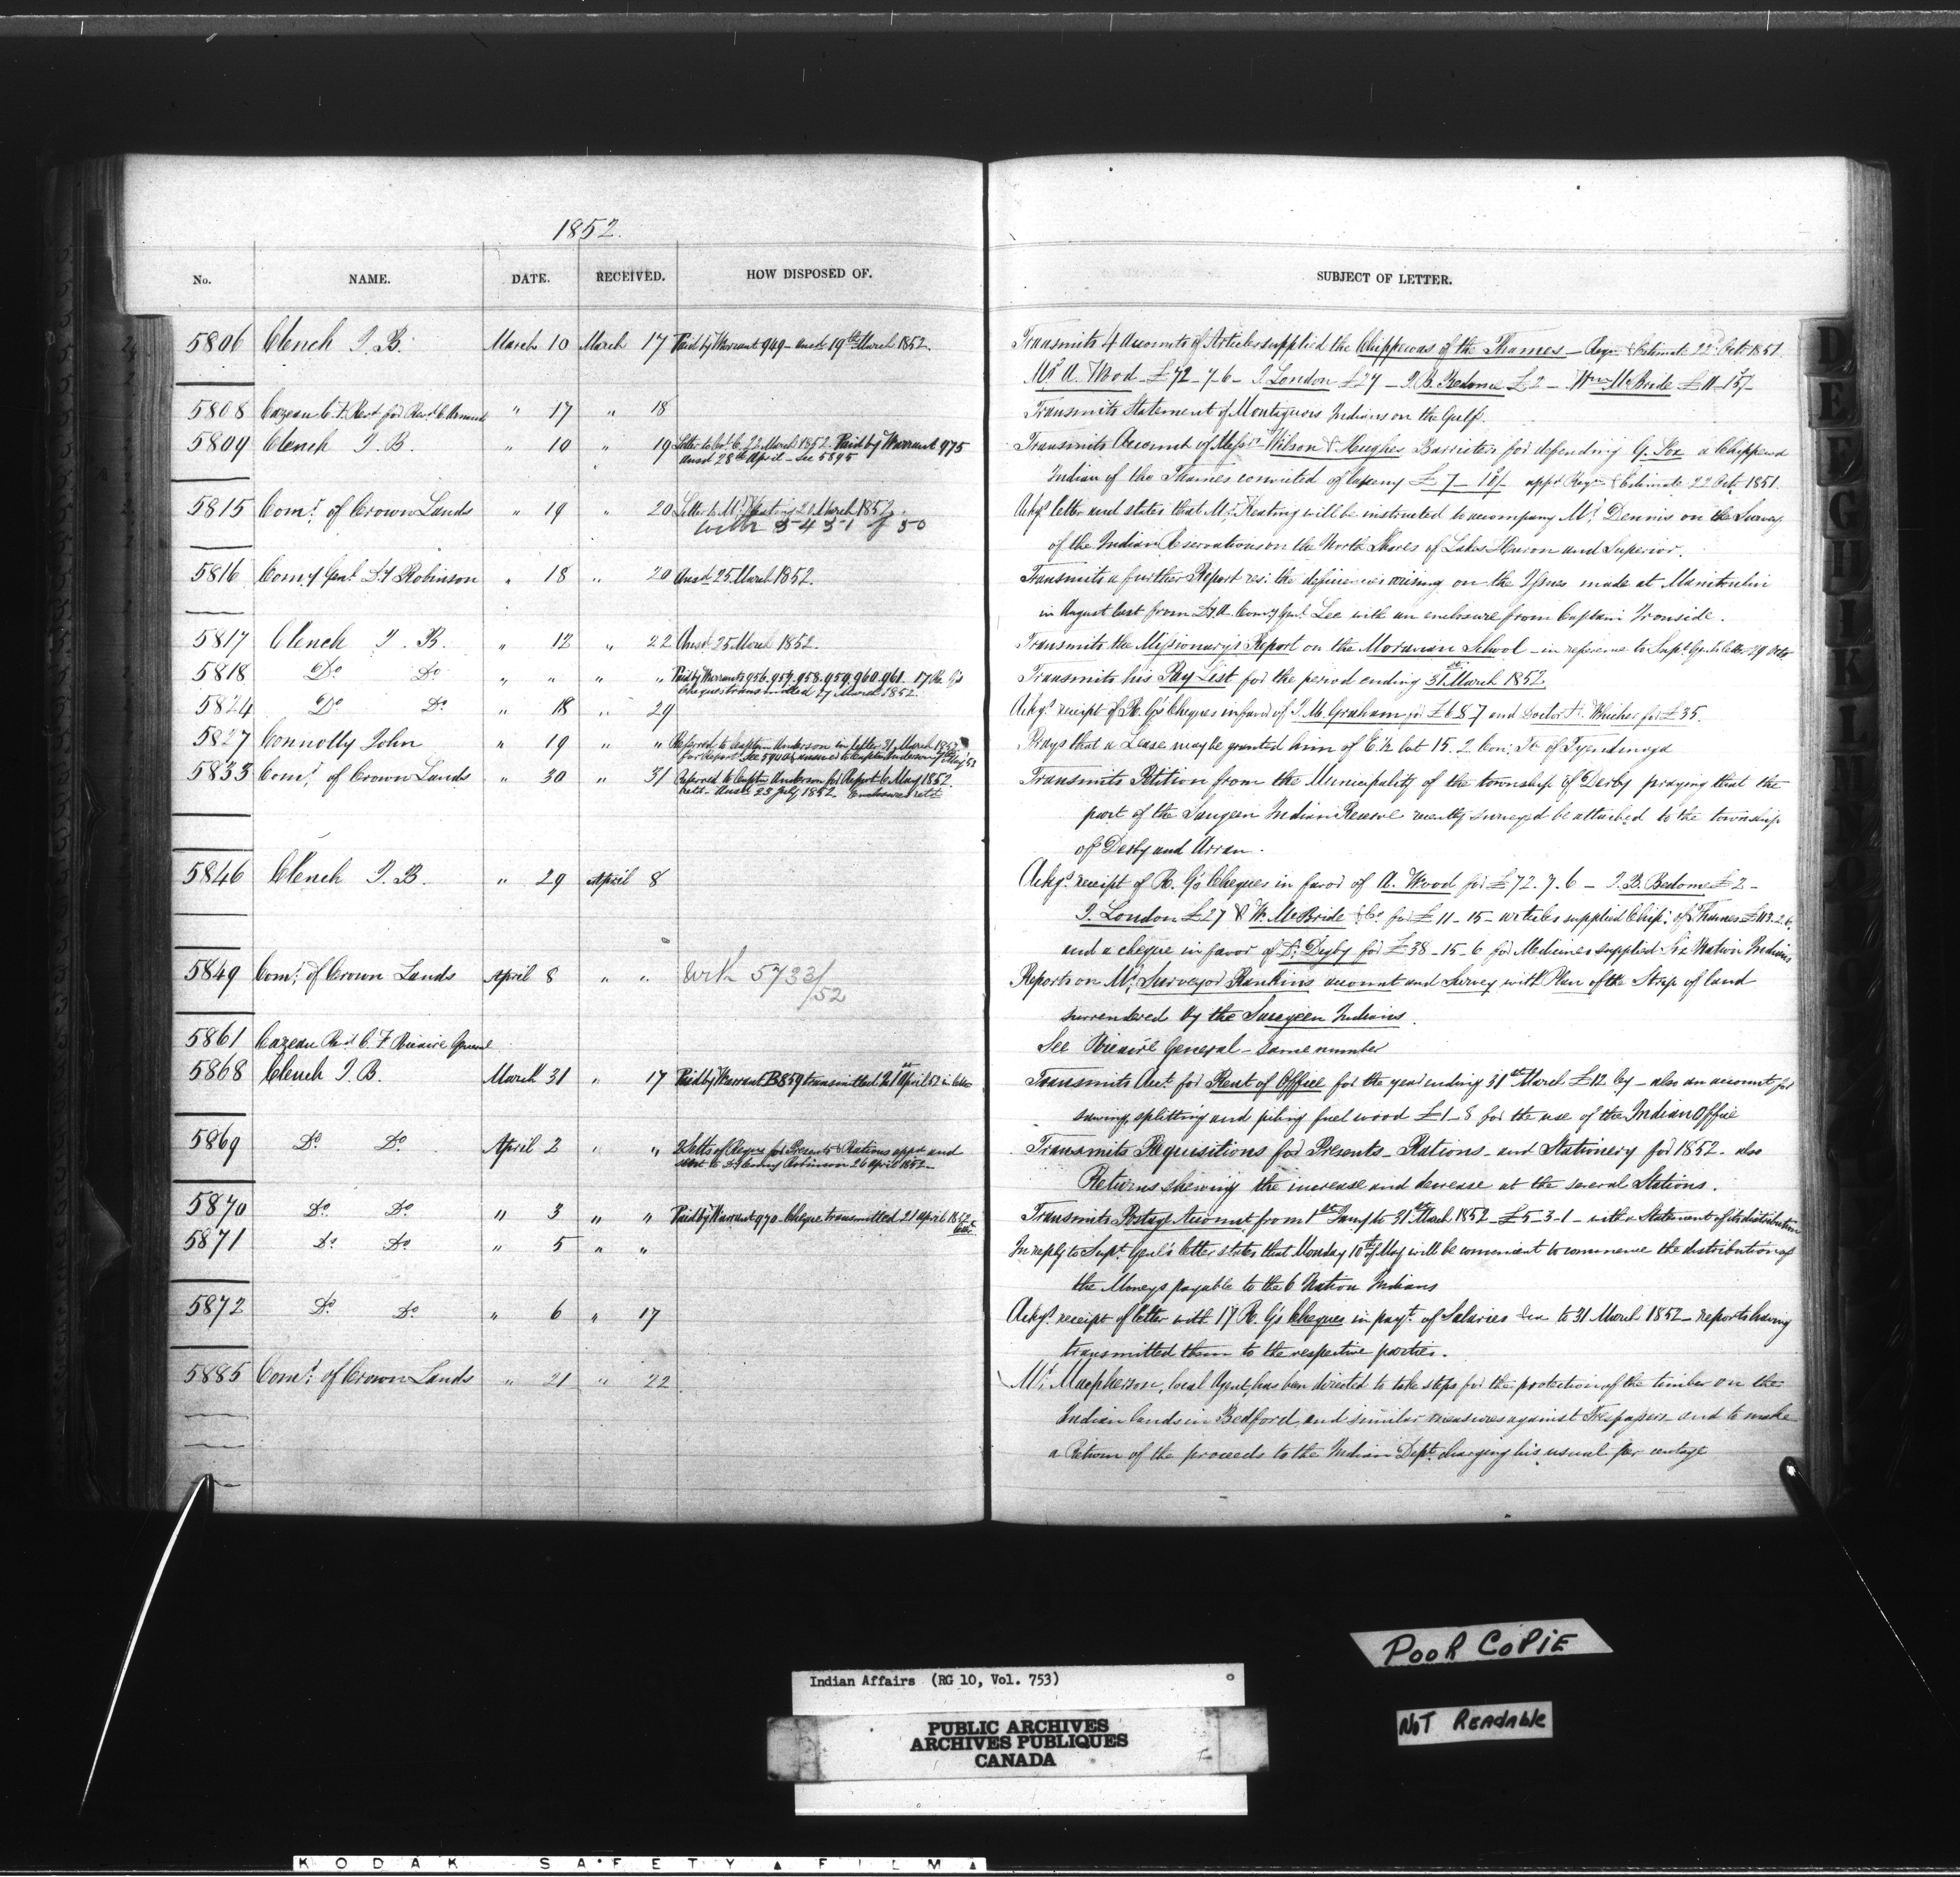 1852.
No. NAME. DATE. RECEIVED. HOW DISPOSED OF. SUBJECT OF LETTER.
5806 Clench J. B. March 10 March 17 Paid by Warrant 949 - ansd 19th March 1852. Transmits 4 Accounts of Articles supplied the Chippewas of the Thames - Reqn & Estimate 22d Oct 1851.
Mr A. Wood £72-7-6 - J. London £27 - J. B. Bedome £2 - Wm McBride £11-15/-
5808 Cazeau C. F. Revd for Revd C. Arnaud " 17 " 18 Transmits Statement of Montagnais Indians on the Gulf.
5809 Clench J. B. " 10 " 19 Letter to Col. C. 22 March 1852. Paid by Warrant 975 Transmits Account of Messrs Wilson & Hughes Barristers for defending G. Fox a Chippewa
ansd 28th April - See 5895 Indian of the Thames convicted of larceny £7-10/- appd Reqn & Estimate 22 Oct 1851.
5815 Comr of Crown Lands " 19 " 20 Letter to Mr Keating 21 March 1852. Ackgs letter and states that Mr Keating will be instructed to accompany Mr Dennis on the Survey
with 5431 of 50 of the Indian Reservations on the North Shores of Lakes Huron and Superior.
5816 Comy Genl Dy Robinson " 18 " 20 Ansd 25 March 1852. Transmits a further Report res: the deficiencies arising on the Issues made at Manitoulin
in August last from Dy A. Comy Genl Lee with an enclosure from Captain Ironside.
5817 Clench J. B. " 12 " 22 Ansd 25 March 1852. Transmits the Missionary's Report on the Moravian School - in reference to Supt Genls letter 29 Octr
5818 Do Do " " " " Paid by Warrants 956. 957. 958. 959. 960. 961. 17 R. G's Transmits his Pay List for the period ending 31st March 1852.
Cheques transmitted 27 March 1852.
5824 Do Do " 18 " 29 Ackgs receipt of R. G's Cheques in favor of J. M. Graham for £6 8 7 and Doctor for £35.
5827 Connolly John " 19 " " Referred to Captain Anderson in letter 31 March 1852 Prays that a Lease may be granted him of E ½ Lot 15. 2 Con: Tp of Tyendinaga
for Report. See 5904
5833 Comr of Crown Lands " 30 " 31 Referred to Captn Anderson for Report 6 May 1852. Transmits Petition from the Municipality of the township of Derby praying that the
retd - Ansd 23 July 1852. Enclosures retd part of the Saugeen Indian Reserve recently surveyed be attached to the township
of Derby and Arran.
5846 Clench J. B. " 29 April 8 Ackgs receipt of R. G's Cheques in favor of A. Wood for £72.7.6 - J. B. Bedome £2 -
J. London £27 & W. McBride & Co. for £11-15- articles supplied Chip: of Thames £113.2.6.
and a cheque in favor of Dr Digby for £38-15-6 for Medicines supplied Six Nation Indians
5849 Comr of Crown Lands April 8 " " With 5733/52 Reports on Mr Surveyor Rankins account and Survey with Plan of the Strip of land
surrendered by the Saugeen Indians.
5861 Cazeau Revd C. F. Vicaire General See Vicaire General - same number
5868 Clench J. B. March 31 " 17 Paid by Warrant B859 transmitted 21st April 52 in letter Transmits Acct for Rent of Office for the year ending 31st March £12 Cy - also an account for
sawing, splitting and piling fuel wood £1-8 for the use of the Indian Office
5869 Do Do April 2 " " 2 Setts of Reqns for Presents & Rations appd and Transmits Requisitions for Presents - Rations - and Stationery for 1852 - also
sent to Dy Comy Robinson 26 April 1852 - Returns shewing the increase and decrease at the several Stations.
5870 Do Do " 3 " " Paid by Warrant 970 - Cheque transmitted 21 April 1852 Transmits Postage Account from 1st Jany to 31st March 1852 - £5-3-1 - with a Statement of its distribution
5871 Do Do " 5 " " In reply to Supt Genl's letter states that Monday 10th of May will be convenient to commence the distribution of
the Moneys payable to the 6 Nation Indians
5872 Do Do " 6 " 17 Ackgs receipt of letter with 17 R. G's Cheques in payt of Salaries &ca to 31 March 1852 - reports having
transmitted them to the respective parties.
5885 Comr of Crown Lands " 21 " 22 Mr Macpherson, local Agent, has been directed to take steps for the protection of the timber on the
Indian lands in Bedford, and similar measures against Trespassers and to make
a Return of the proceeds to the Indian Dept charging his usual per centage
D
E
F
G
H
I
K
L
POOR COPIE
NOT READABLE
Indian Affairs (RG 10, Vol. 753)
PUBLIC ARCHIVES
ARCHIVES PUBLIQUES
CANADA
KODAK SAFETY FILM